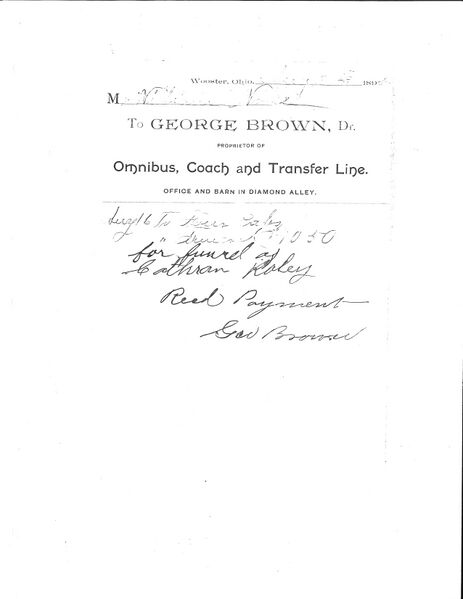 Wooster, Ohio, 189
M
To GEORGE BROWN, Dr.
PROPRIETOR OF
Omnibus, Coach and Transfer Line.
OFFICE AND BARN IN DIAMOND ALLEY.
16 To Four
" 10 50
for funrel of
Cathran Raley
Recd Payment
Geo Brown